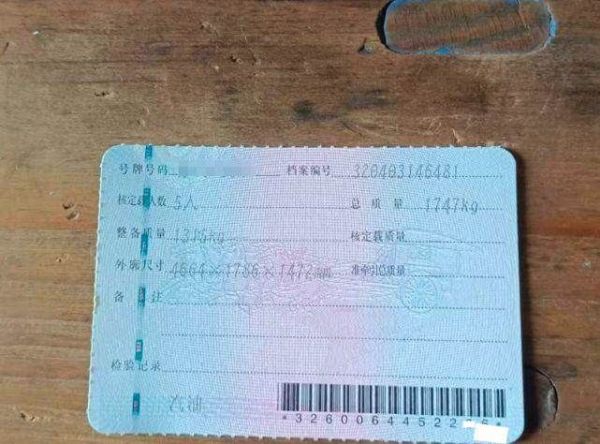 号牌号码 档案编号 320403146481
核定载人数 5人 总质量 1747kg
整备质量 1315kg 核定载质量
外廓尺寸 4664×1786×1472mm 准牵引总质量
备注
检验记录
汽油